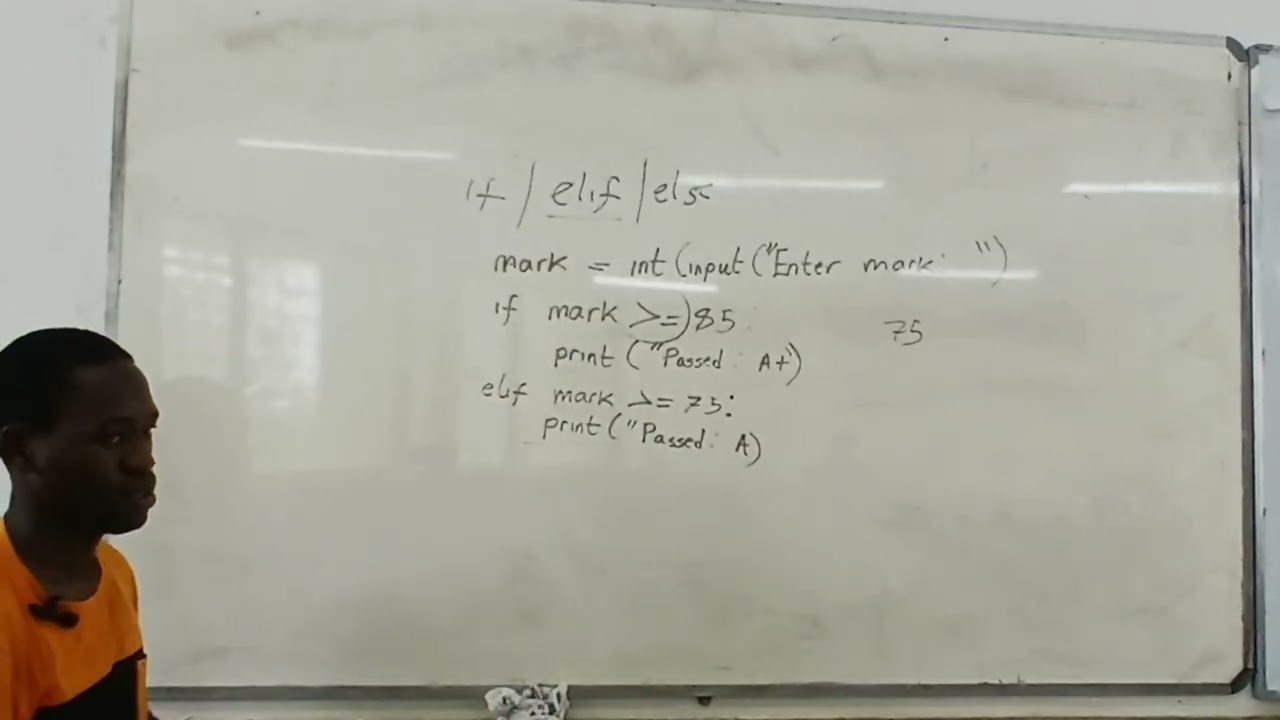 if / elif / else
mark = int(input("Enter mark: ")
if mark >=)85:
print ("Passed: A+")
75
elif mark >= 75:
print("Passed: A)